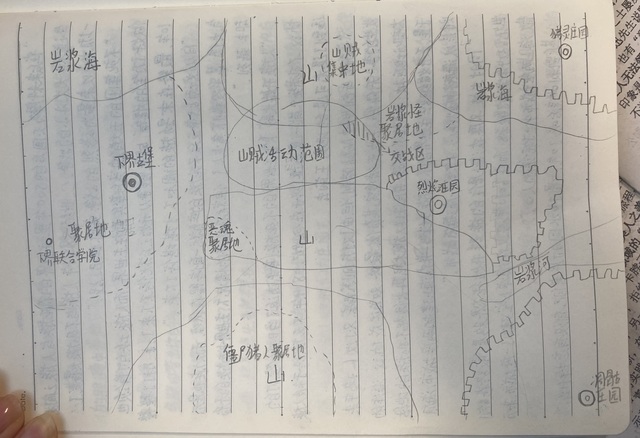 岩浆海
山贼
集中地
山
庄园
岩浆海
岩浆怪
聚居地
交战区
山贼活动范围
下界古堡
烈焰庄园
聚居地
下界联合学院
灵魂
聚居地
山
岩浆河
僵尸猪人聚居地
山
庄园